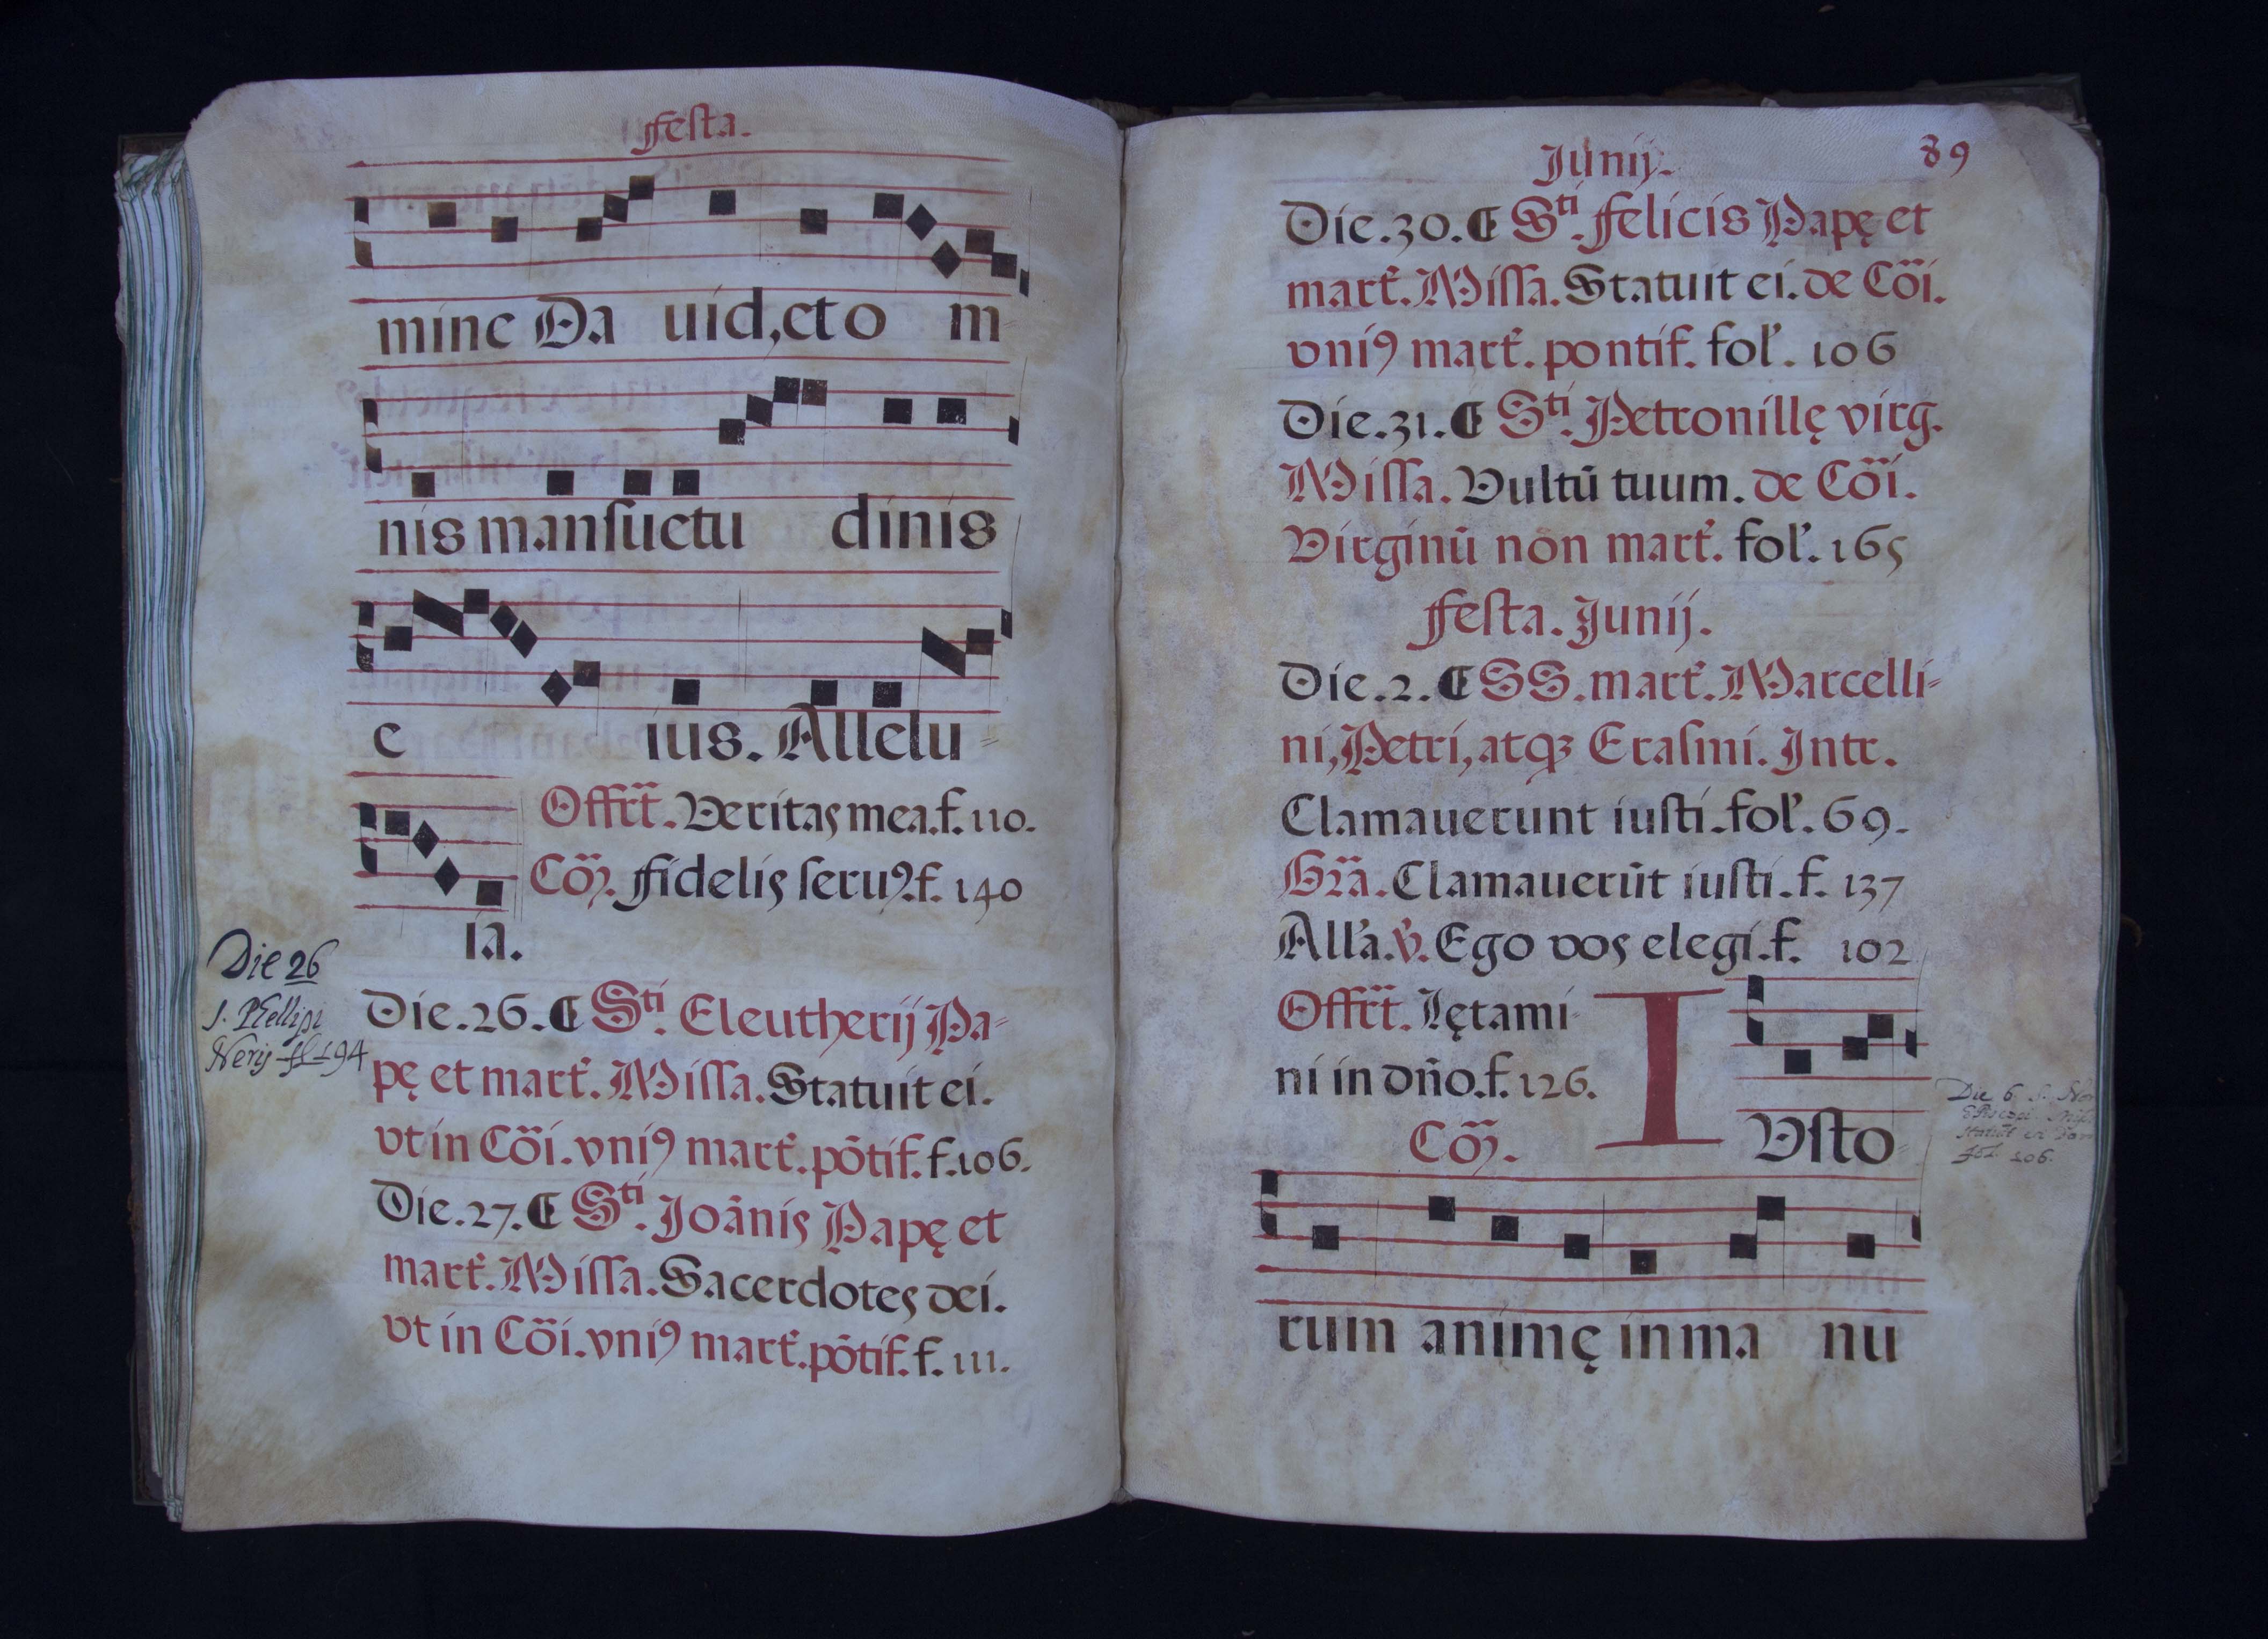 Festa.
mine Da uid, et o m-
nis mansuetu dinis
e ius. Allelu-
ia.
Offrt̃. Veritas mea. f. 110.
Cõ. fidelis seruꝰ. f. 140
Die 26
S. Phellipi
Nerij fl 194
Die. 26. ¶ Sti. Eleutherij Pa-
pę et mart̃. Missa. Statuit ei.
vt in Cõi. vniꝰ mart̃. põtif. f. 106.
Die. 27. ¶ Sti. Joãnis Papę et
mart̃. Missa. Sacerdotes dei.
vt in Cõi. vniꝰ mart̃. põtif. f. 111.
Junij.
89
Die. 30. ¶ Sti. felicis Papę et
mart̃. Missa. Statuit ei. de Cõi.
vniꝰ mart̃. pontif. fol'. 106
Die. 31. ¶ Sti. Petronillę virg.
Missa. Vultũ tuum. de Cõi.
Virginũ nõn mart̃. fol'. 165
Festa. Junij.
Die. 2. ¶ SS. mart̃. Marcelli-
ni, Petri, atqꝫ Erasmi. Intr.
Clamauerunt iusti. fol'. 69.
Gr̃a. Clamauerũt iusti. f. 137
All'a. ℣. Ego vos elegi. f. 102
Offrt̃. Lętami-
ni in dño. f. 126.
Cõ.
I Vsto-
rum animę in ma nu
Die 6 S. Nor
Episcopi Mis.
Statuit ei Dom
fol. 106.